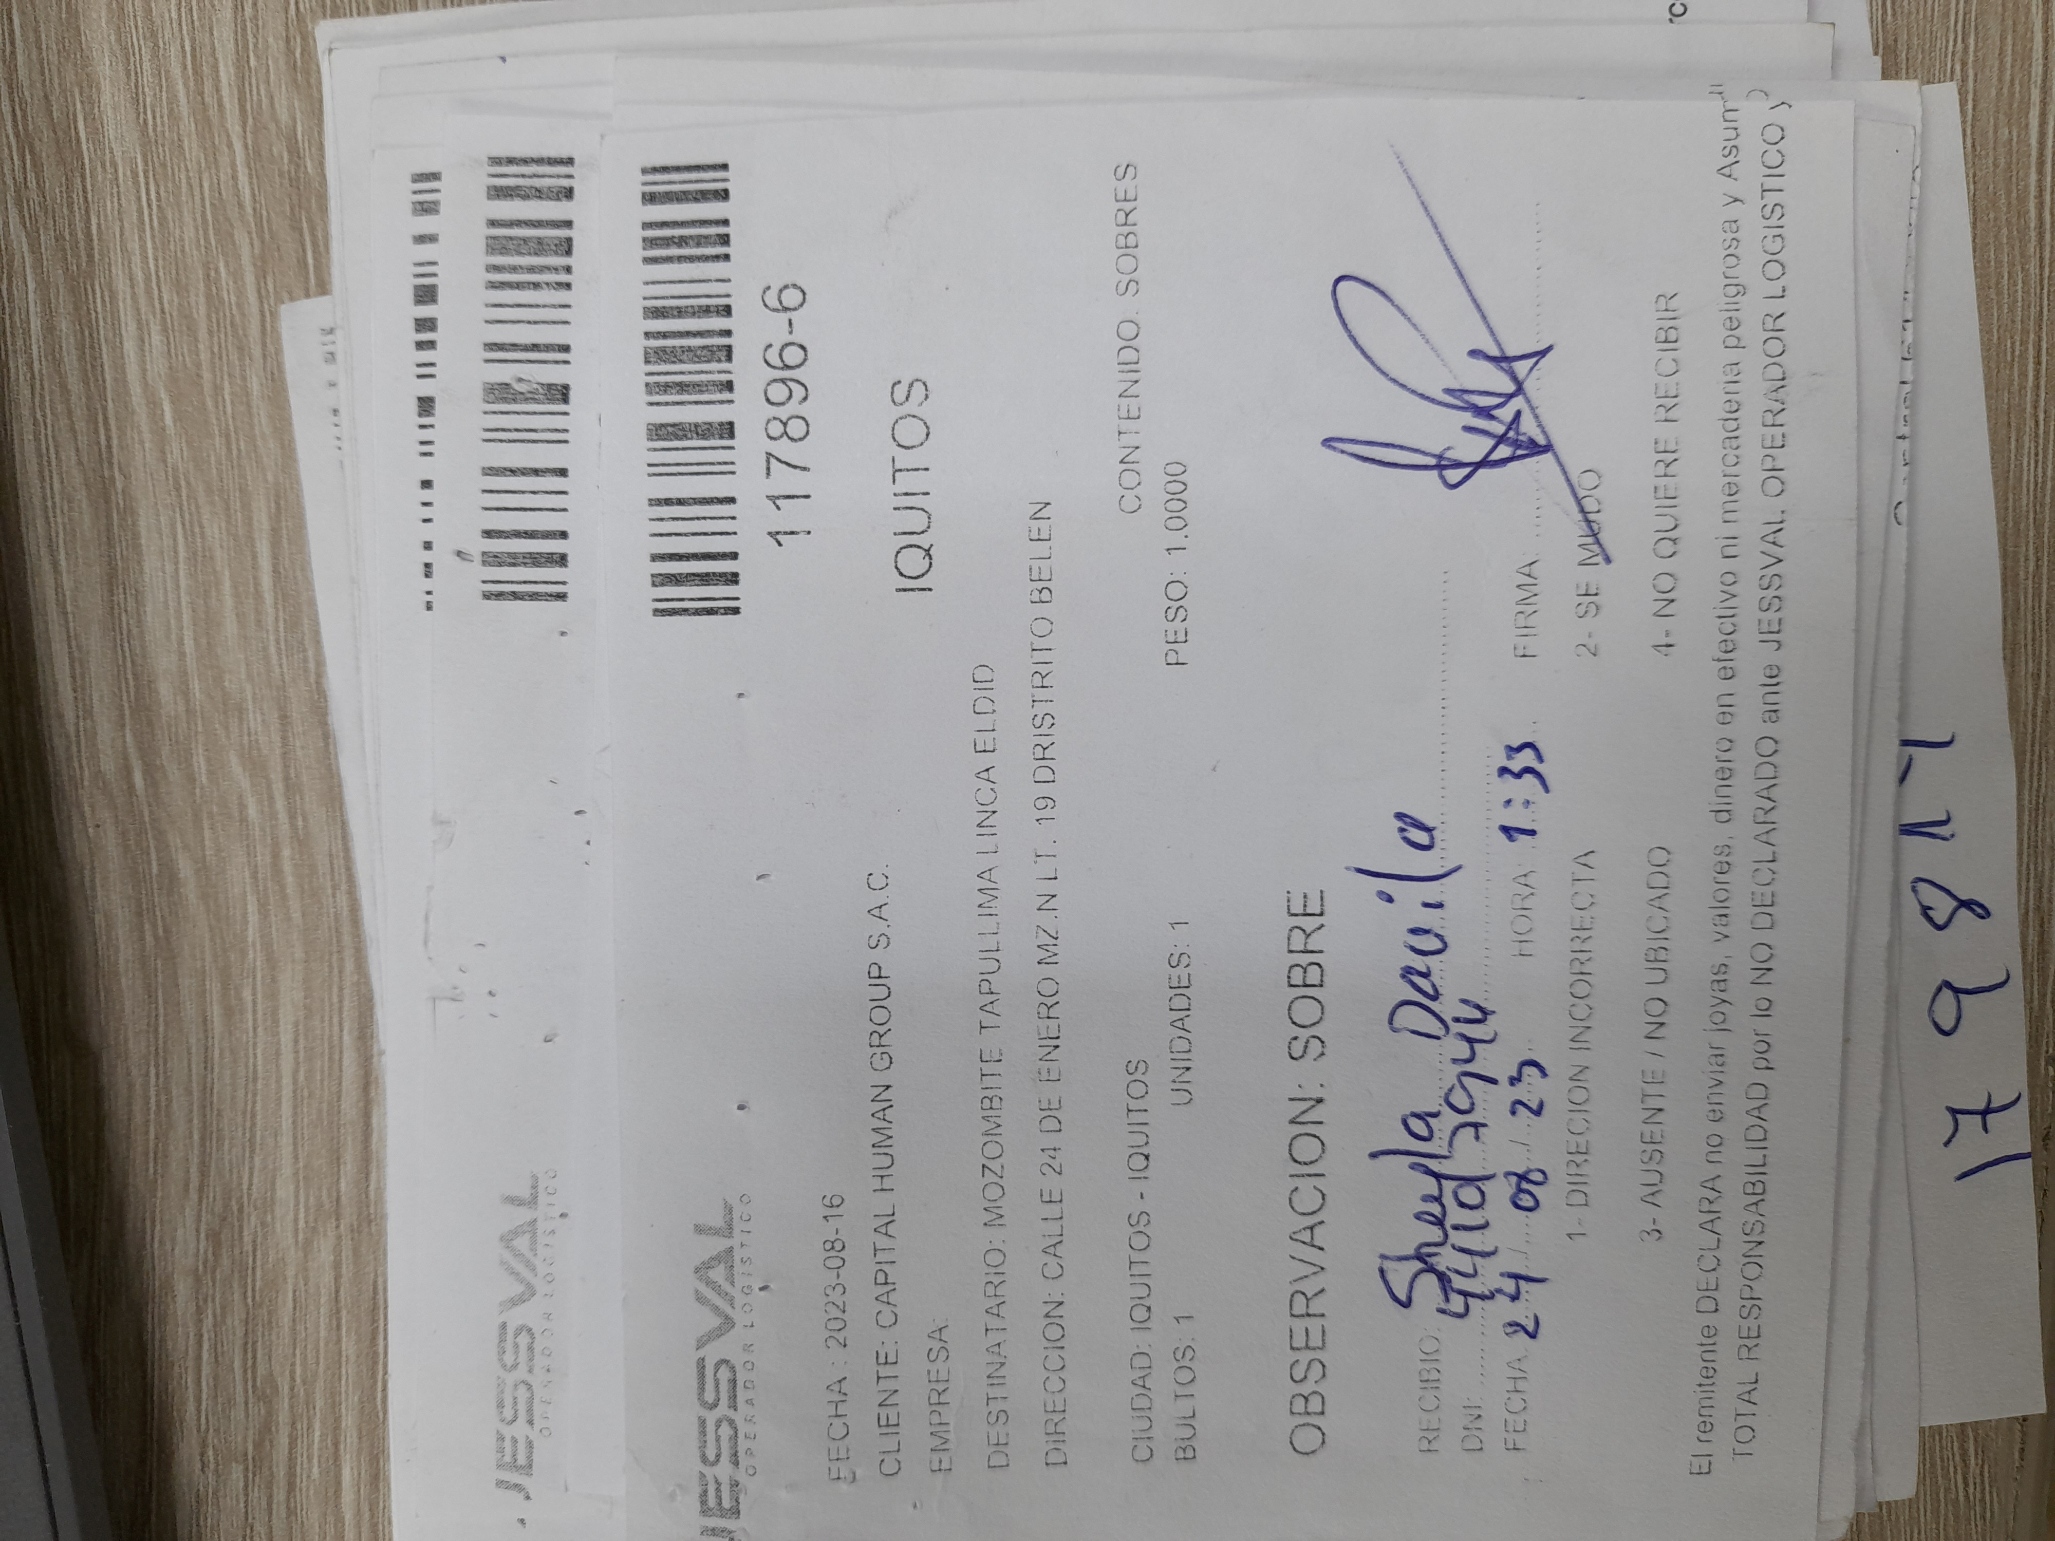 JESSVAL
OPERADOR LOGISTICO
JESSVAL
OPERADOR LOGISTICO
117896-6
FECHA : 2023-08-16
CLIENTE: CAPITAL HUMAN GROUP S.A.C.
IQUITOS
EMPRESA:
DESTINATARIO: MOZOMBITE TAPULLIMA LINCA ELDID
DIRECCION: CALLE 24 DE ENERO MZ.N LT. 19 DRISTRITO BELEN
CIUDAD: IQUITOS - IQUITOS CONTENIDO: SOBRES
BULTOS: 1 UNIDADES: 1 PESO: 1.0000
OBSERVACION: SOBRE
RECIBIO: Sheyla Davila
DNI: 44107944
FECHA 24 / 08 / 23 HORA: 1:33 FIRMA:
1- DIRECION INCORRECTA 2- SE MUDO
3- AUSENTE / NO UBICADO 4- NO QUIERE RECIBIR
El remitente DECLARA no enviar joyas, valores, dinero en efectivo ni mercaderia peligrosa y Asum
TOTAL RESPONSABILIDAD por lo NO DECLARADO ante JESSVAL OPERADOR LOGISTICO y